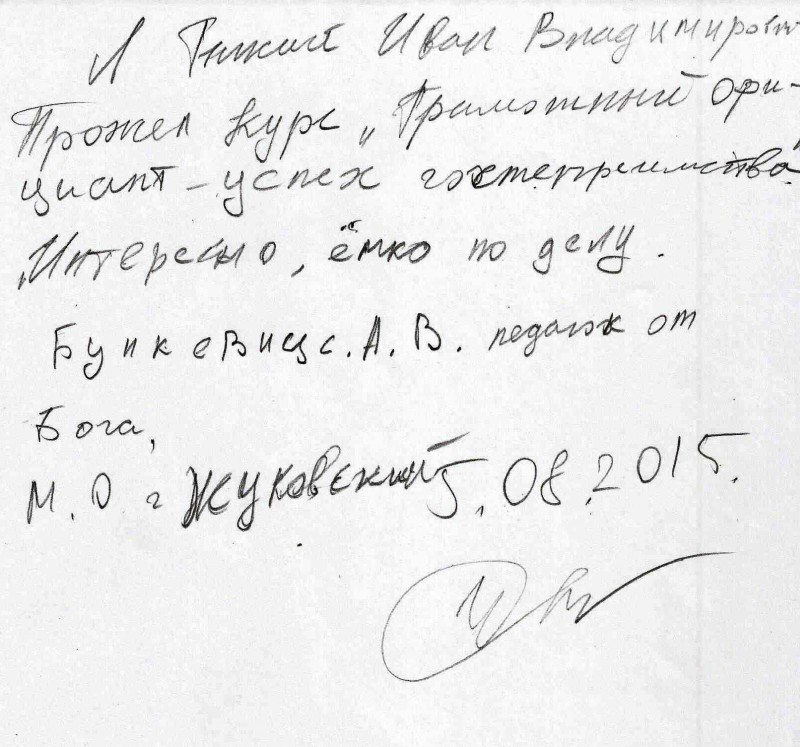 Я Иван Владимирович
Прошел курс „Грамотный офи-
циант - успех гостеприимства"
Интересно, ёмко по делу.
Бункевицс. А. В. педагог от
Бога,
М. О г Жуковский 5.08.2015.